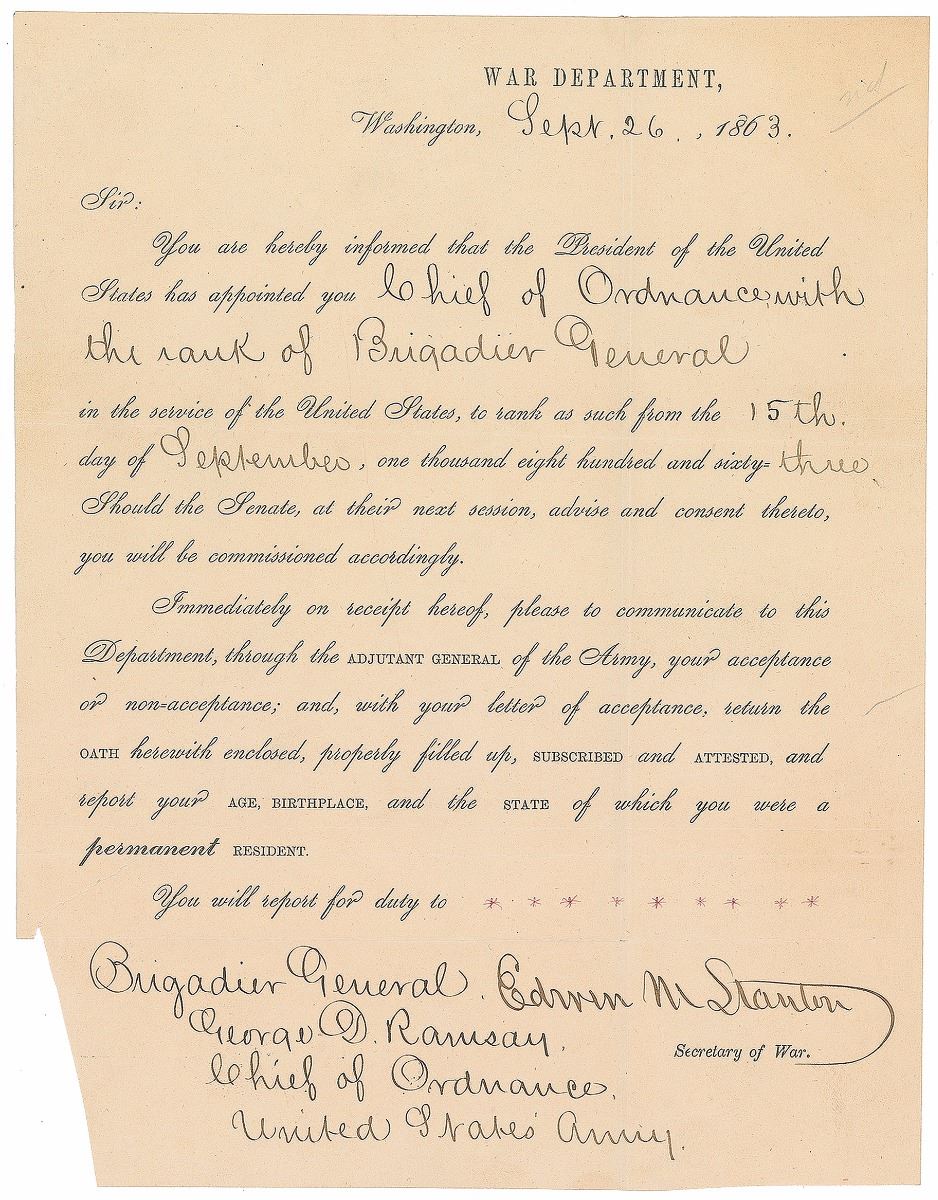 WAR DEPARTMENT,
Washington, Sept. 26., 1863.
Sir:
You are hereby informed that the President of the United
States has appointed you Chief of Ordnance, with
the rank of Brigadier General
in the service of the United States, to rank as such from the 15th.
day of September, one thousand eight hundred and sixty=three
Should the Senate, at their next session, advise and consent thereto,
you will be commissioned accordingly.
Immediately on receipt hereof, please to communicate to this
Department, through the ADJUTANT GENERAL of the Army, your acceptance
or non=acceptance; and, with your letter of acceptance, return the
OATH herewith enclosed, properly filled up, SUBSCRIBED and ATTESTED, and
report your AGE, BIRTHPLACE, and the STATE of which you were a
permanent RESIDENT.
You will report for duty to * * * * * * * * *
Brigadier General. Edwin M Stanton
George D. Ramsay,
Secretary of War.
Chief of Ordnance,
United States Army.